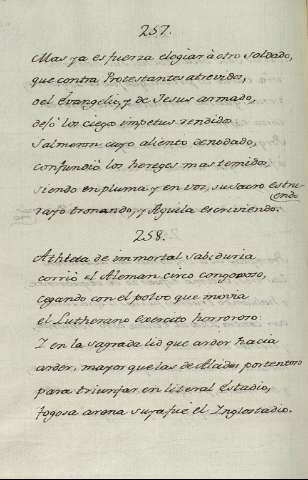 257.
Mas ya es fuerza elogiar à otro soldado,
que contra Protestantes atrevidos,
del Evangelio, y de Jesus armado,
dejó los ciegos impetus rendidos
Salmeron cuyo aliento denodado,
confundió los hereges mas temidos,
siendo en pluma y en voz, su sacro estru-
endo
rayo tronando, y Aguila escriviendo.
258.
Athleta de immortal Sabiduria
corrió el Aleman circo
cegando con el polvo que movia
el Lutherano exercito horroroso:
I en la sagrada lid que arder hacia
arder, mayor que las de Alcides portentoso
para triunfar en literal Estadio,
fogosa arena suya fué el Inglostadio.